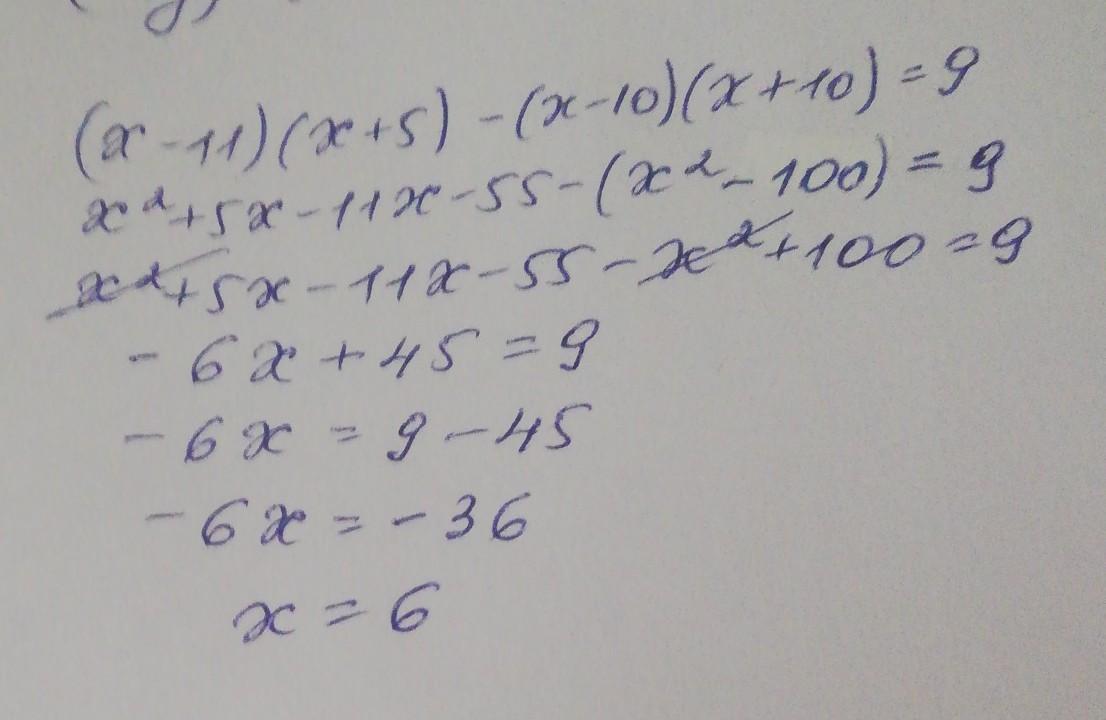 (x-11)(x+5)-(x-10)(x+10)=9
x²+5x-11x-55-(x²-100)=9
x²+5x-11x-55-x²+100=9
-6x+45=9
-6x=9-45
-6x=-36
x=6